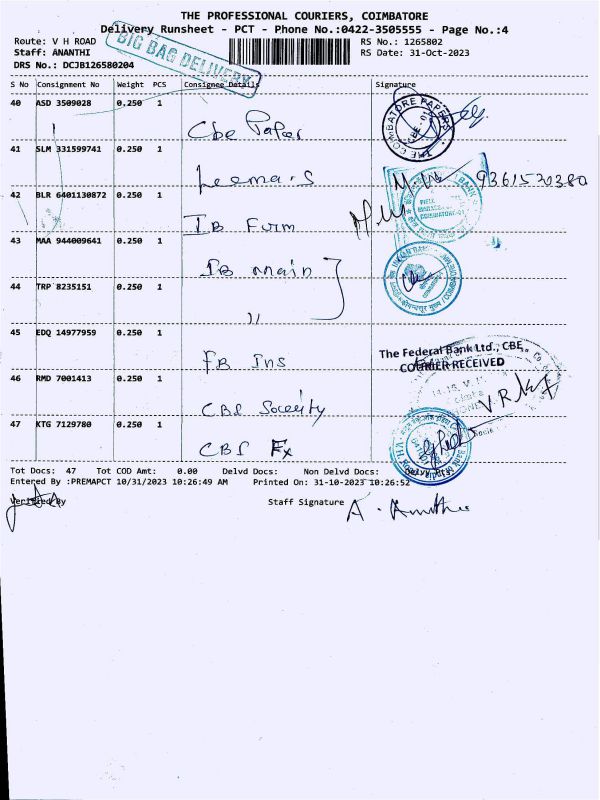 THE PROFESSIONAL COURIERS, COIMBATORE
Delivery Runsheet - PCT - Phone No.:0422-3505555 - Page No.:4
Route: V H ROAD RS No.: 1265802
Staff: ANANTHI RS Date: 31-Oct-2023
DRS No.: DCJB126580204
BIG BAG DELIVERY
S No Consignment No Weight PCS Consignee Details Signature
40 ASD 3509028 0.250 1
Cbe Paper
THE COIMBATORE PAPERS
41 SLM 331599741 0.250 1
9361520380
42 BLR 6401130872 0.250 1
IB Furm
43 MAA 944009641 0.250 1
IB main
44 TRP 8235151 0.250 1
"
45 EDQ 14977959 0.250 1
FB Ins
The Federal Bank Ltd., CBE.,
COURIER RECEIVED
46 RMD 7001413 0.250 1
CBE Soceity
47 KTG 7129780 0.250 1
Tot Docs: 47 Tot COD Amt: 0.00 Delvd Docs: Non Delvd Docs:
Entered By :PREMAPCT 10/31/2023 10:26:49 AM Printed On: 31-10-2023 10:26:52
Verified By Staff Signature